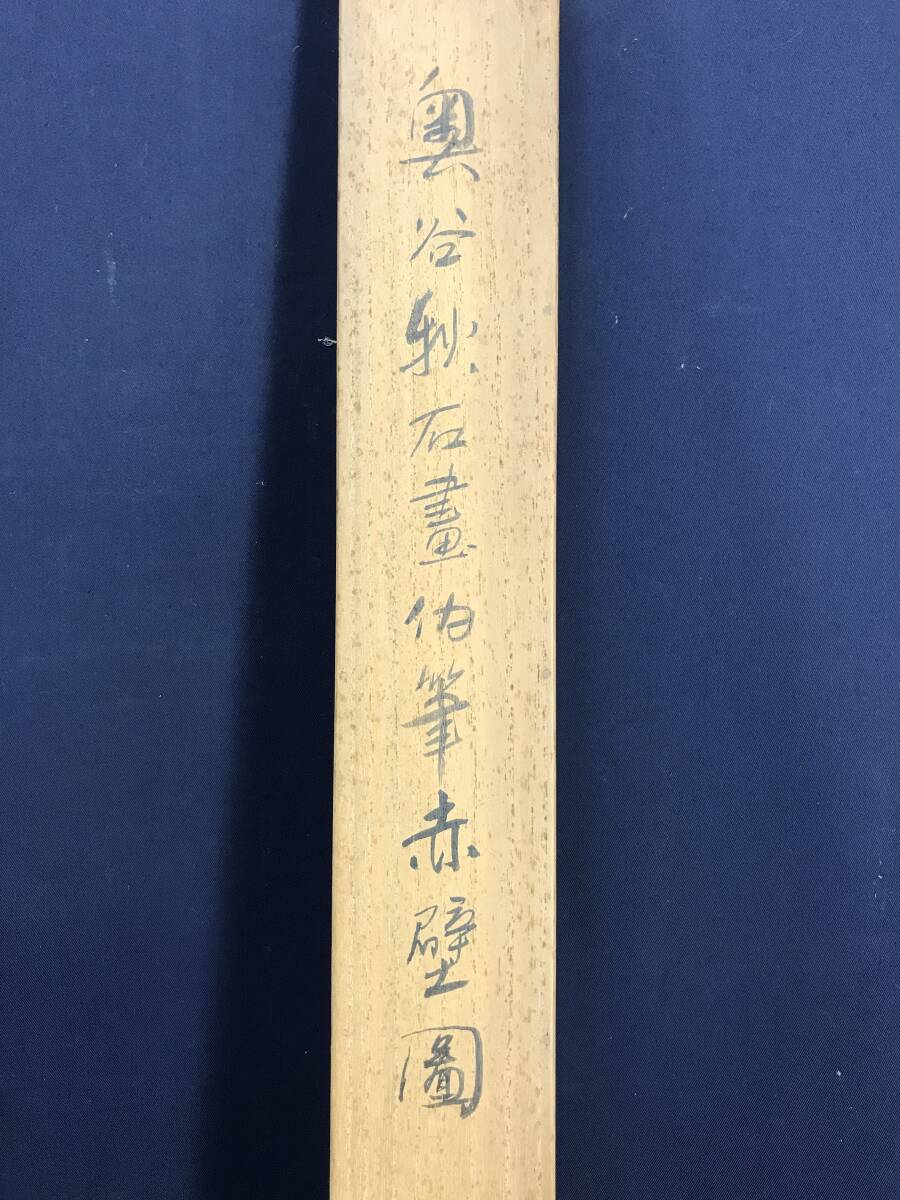 奥谷秋石畫伯筆赤壁圖